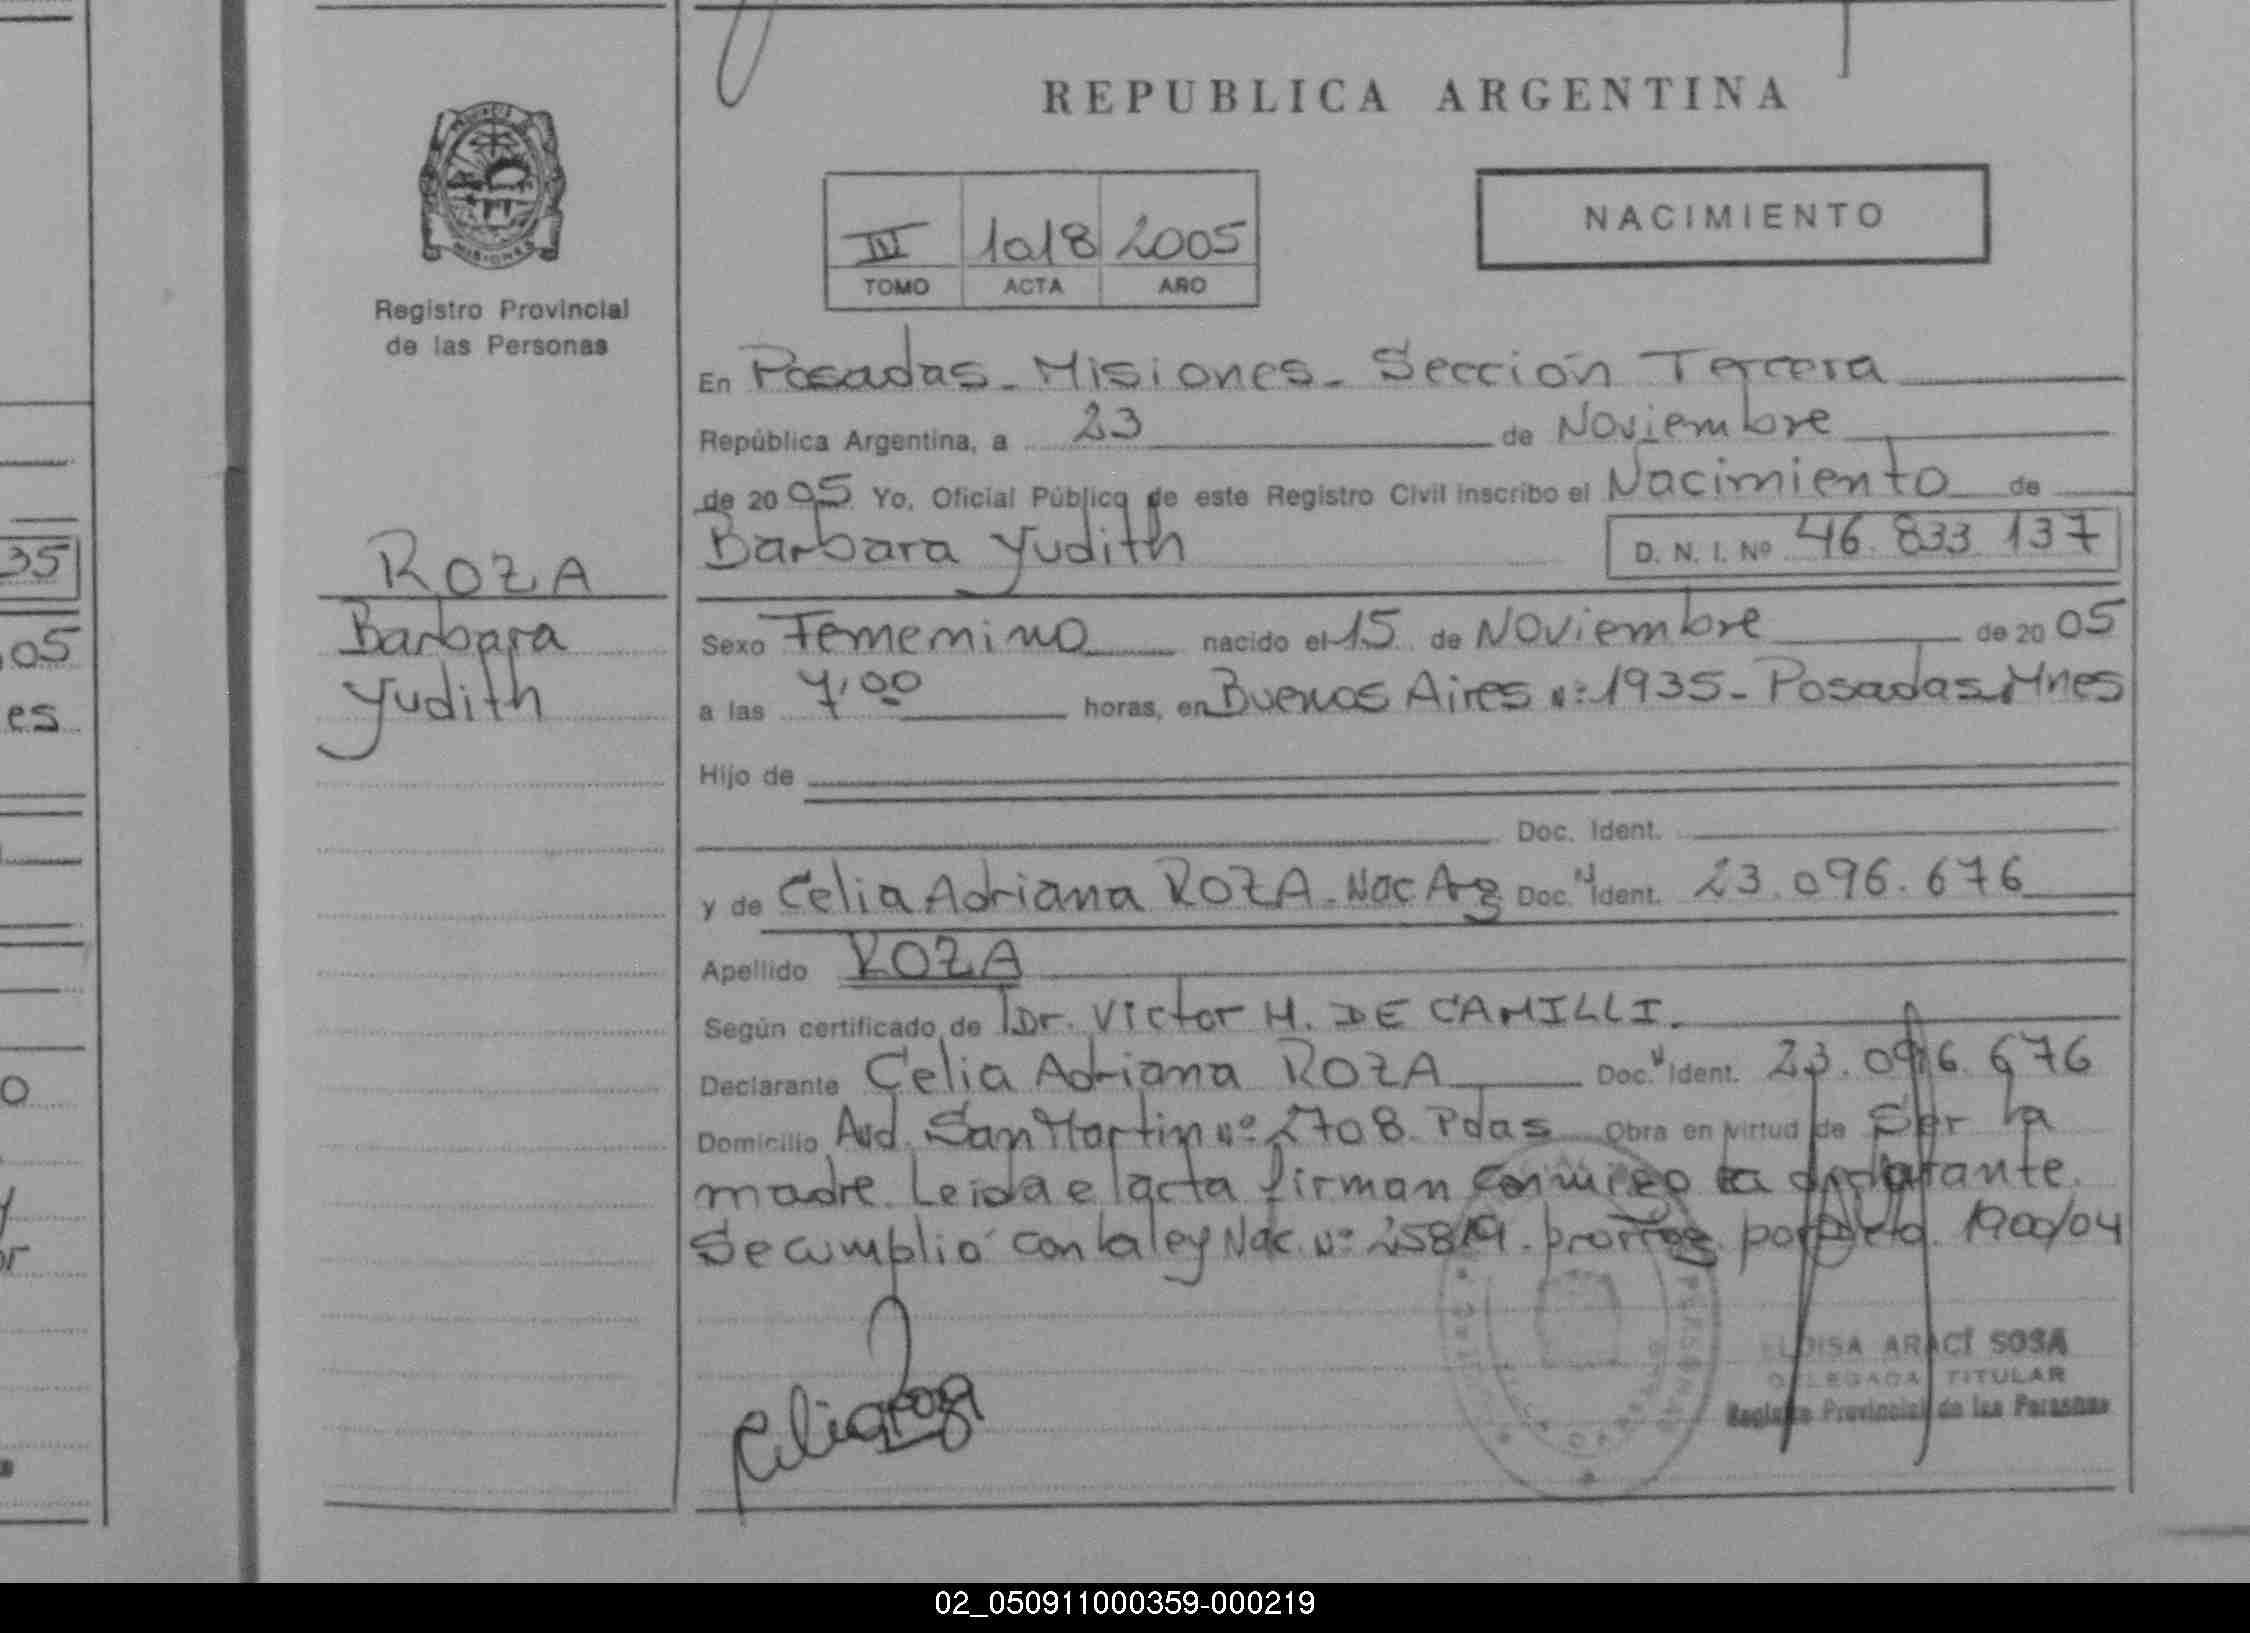 REPUBLICA ARGENTINA
NACIMIENTO
IV 1018 2005
TOMO ACTA AÑO
MISIONES
Registro Provincial
de las Personas
En Posadas - Misiones - Sección Tercera
República Argentina, a 23 de Noviembre
de 2005 Yo, Oficial Público de este Registro Civil inscribo el Nacimiento de
Barbara Yudith D. N. I. Nº 46.833.137
ROZA
Barbara
Yudith
Sexo Femenino nacido el 15 de Noviembre de 2005
a las 7,00 horas, en Buenos Aires Nº 1935 - Posadas Mnes
Hijo de
Doc. Ident.
y de Celia Adriana ROZA - Nac Arg Doc. Ident. 23.096.676
Apellido ROZA
Según certificado de Dr. Victor H. DE CAMILLI.
Declarante Celia Adriana ROZA Doc. Ident. 23.096.676
Domicilio Avd. San Martin Nº 2708 Pdas Obra en virtud de Ser la
madre. Leida el acta firman conmigo la declarante.
Se cumplió con la ley Nac. Nº 25819 por 1900/04
Celia Roza
ELOISA ARACÍ SOSA
DELEGADA TITULAR
Registro Provincial de las Personas
35
05
es
02_050911000359-000219